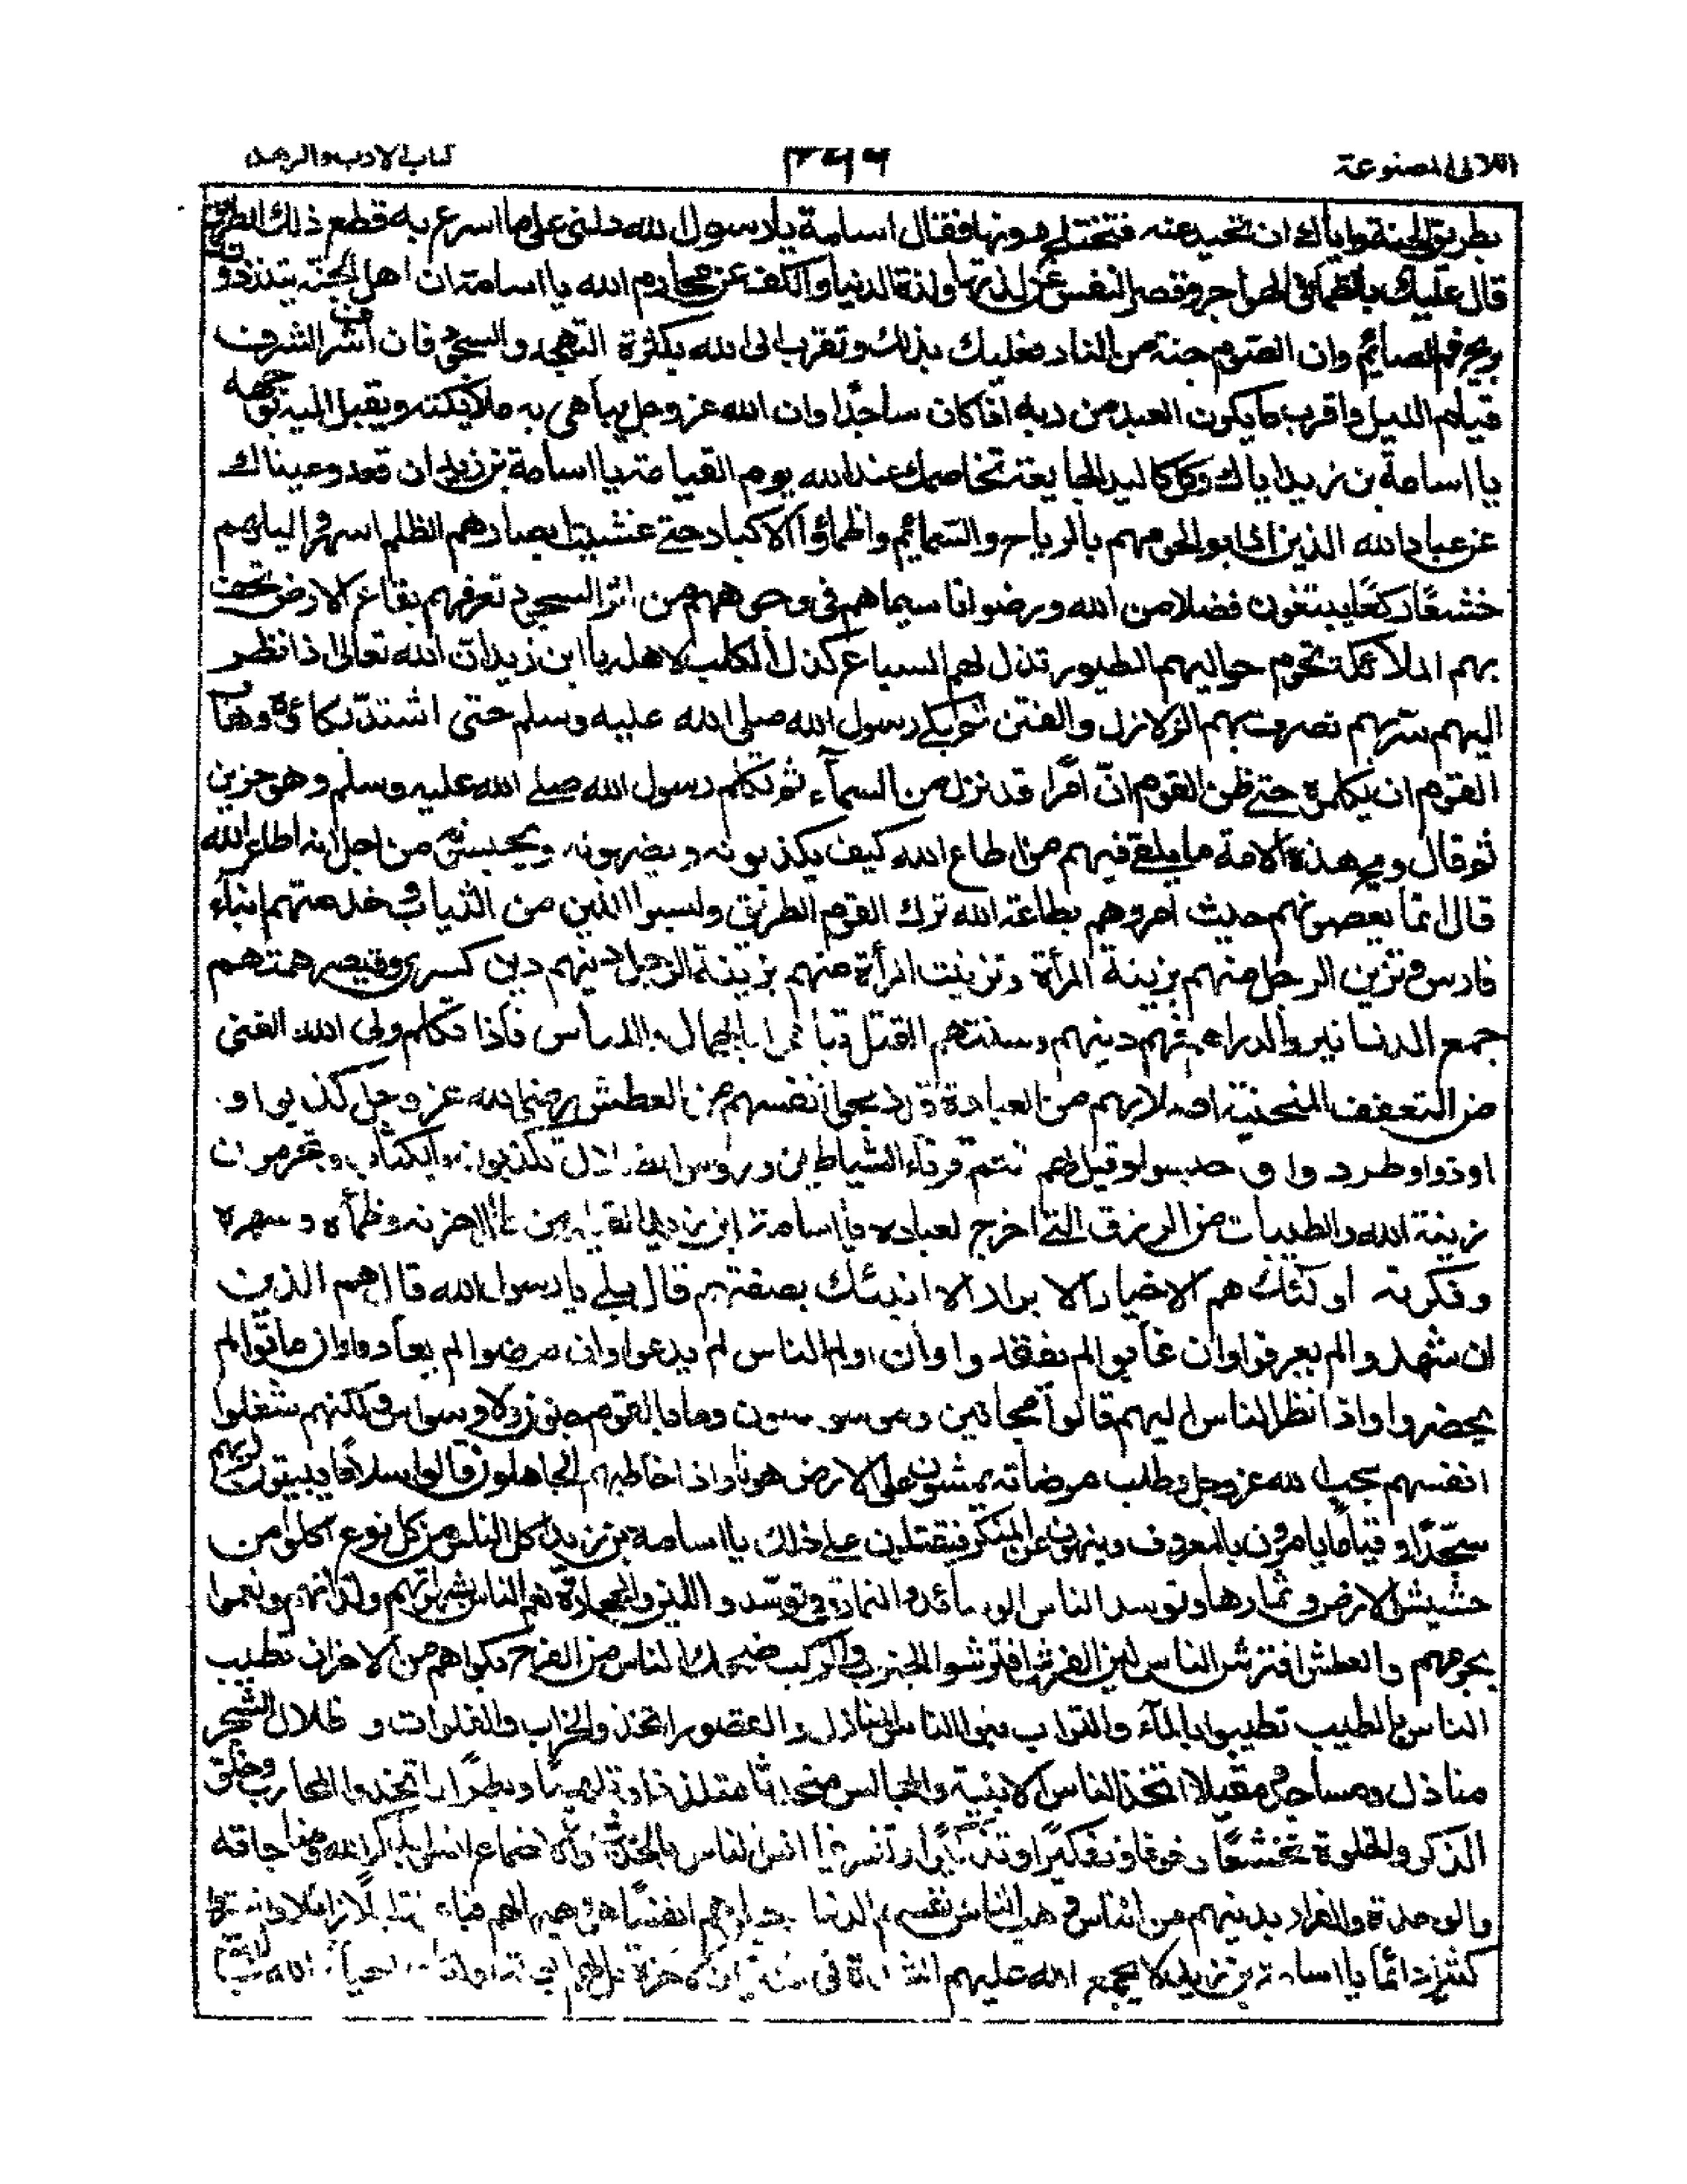 اللالى المصنوعة
كتاب الادب والزهد
بطريق الجنة واياك ان تحيد عنه فتختلج دونها فقال اسامة يا رسول الله دلنى على ما اسرع به قطع ذلك الطريق
قال عليك بالظمأ فى الهواجر وقصر النفس عن لذتها ولذة الدنيا والكف عن محارم الله يا اسامة ان اهل الجنة يتلذذون
بريح فم الصائم وان الصوم جنة من النار فعليك بذلك وتقرب الى الله بكثرة التهجد والسجود فان اشرف الشرف
قيام الليل واقرب ما يكون العبد من ربه اذا كان ساجدا وان الله عز وجل يباهى به ملائكته ويقبل اليه بوجهه
يا اسامة بن زيد اياك وكل كبد جايعة تخاصمك عند الله يوم القيامة يا اسامة بن زيد ان تعد وعيناك
عن عباد الله الذين اذابوا لحومهم بالرياح والسمائم واظماؤا الاكباد حتى غشيت ابصارهم الظلم اسهروا ليلهم
خشعا ركعا يبتغون فضلا من الله ورضوانا سيماهم فى وجوههم من اثر السجود تعرفهم بقاع الارض تحف
بهم الملائكة تحوم حواليهم الطيور تذل لهم السباع كذل الكلب لاهله يا ابن زيد ان الله تعالى اذا نظر
اليهم سرّ بهم تصرف بهم الزلازل والفتن ثم بكى رسول الله صلى الله عليه وسلم حتى اشتدّ بكائه وهاب
القوم ان يكلموه حتى ظن القوم انّ امرا قد نزل من السمآء ثم تكلم رسول الله صلے الله عليه وسلم وهو حزين
ثم قال ويح هذه الامة ما يلقى فيهم من اطاع الله كيف يكذبونه ويضربونه ويحبسونه من اجل انه اطاع الله
قال انما يعصونهم حيث امروهم بطاعة الله ترك القوم الطريق ولبسوا اللين من الثياب وخدمتهم ابناء
فارس وتزين الرجل منهم بزينة المرأة وتزينت المرأة منهم بزينة الرجل دينهم دين كسرى وقيصر همتهم
جمع الدنانير والدراهم فهم دينهم وسنتهم القتل تباهوا بالجمال واللباس فاذا تكلم ولى الله الغنى
من التعفف المنحنية اصلابهم من العبادة قد ذبحوا انفسهم من العطش رضى الله عز وجل كذبوا و
اوذوا وطردوا وحبسوا وقيل لهم انتم قرناء الشياطين ورؤس الضلال تكذبون بالكتاب وتحرمون
زينة الله والطيبات من الرزق التى اخرج لعباده يا اسامة ابن زيد حزنه وظمأه وسهره
وفكرته اولئك هم الاخيار الابرار الا انبئك بصفتهم قال بلى يا رسول الله قال هم الذين
ان شهدوا لم يعرفوا وان غابوا لم يفقدوا وان اولم الناس لم يدعوا وان مرضوا لم يعادوا وان ماتوا لم
يحضروا واذا نظر الناس اليهم قالوا مجانين وموسوسون وما بالقوم جنون ولا وسواس ولكنهم شغلوا
انفسهم بحب الله عز وجل وطلب مرضاته يمشون على الارض هونا واذا خاطبهم الجاهلون قالوا سلاما يبيتون لربهم
سجّدا وقياما يامرون بالمعروف وينهون عن المنكر فيقتلون على ذلك يا اسامة بن زيد اكل الناس من كل نوع اكلوا من
حشيش الارض وثمارها وتوسد الناس الوسائد والنمارق وتوسدوا اللبن والحجارة نعم الناس بشهواتهم ولذاتهم ونعموا
بجوعهم والعطش افترش الناس لين الفرش افترشوا الجنوب والركب ضحك الناس من الفرح بكوا هم من الاحزان تطيب
الناس بالطيب تطيبوا بالمآء والتراب بنى الناس المنازل والقصور اتخذوا الخراب والفلوات وظلال الشجر
منازل ومساجد ومقيلا اتخذ الناس الابنية والمجالس متحدثا متلذذا وتلهيا وبطرا اتخذوا المحارب وخلق
الذكر والخلوة تخشعا وخوفا وتفكيرا وتذكيرا انس الناس بالحديث والاجتماع انسوا بذكر الله ومناجاته
والوحدة والفرار بدينهم من الناس وهب الناس نفسهم للدنيا
كثير دائما يا اسامة بن زيد لا يجمع الله عليهم الشدة فى الدنيا والاخرة بل لهم الجنة